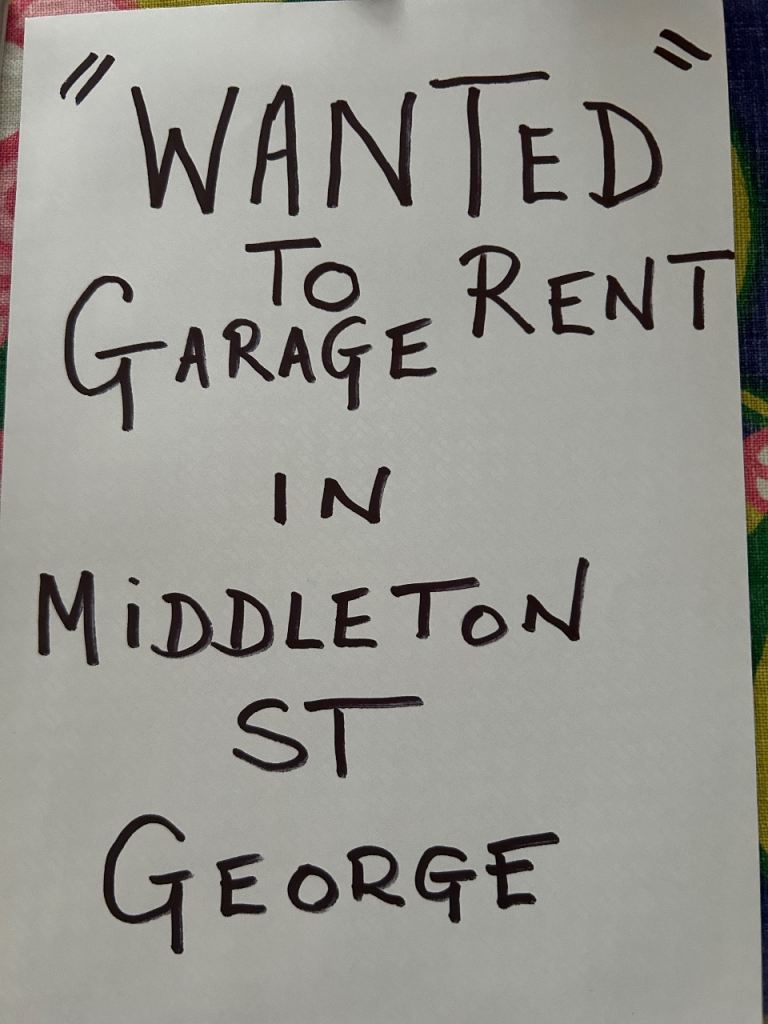 "WANTED"
TO RENT
GARAGE
IN
MiDDLETON
ST
GEORGE